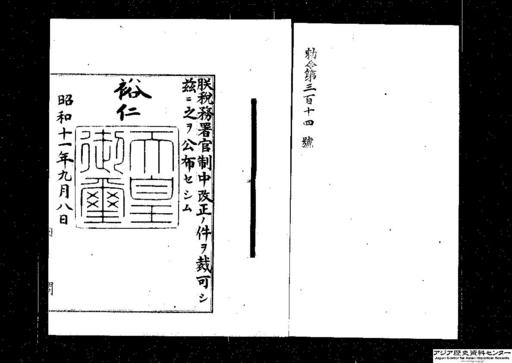 勅令第三百十四號
朕税務署官制中改正ノ件ヲ裁可シ
茲ニ之ヲ公布セシム
裕仁
天皇
御璽
昭和十一年九月八日
内閣
アジア歴史資料センター
Japan Center for Asian Historical Records